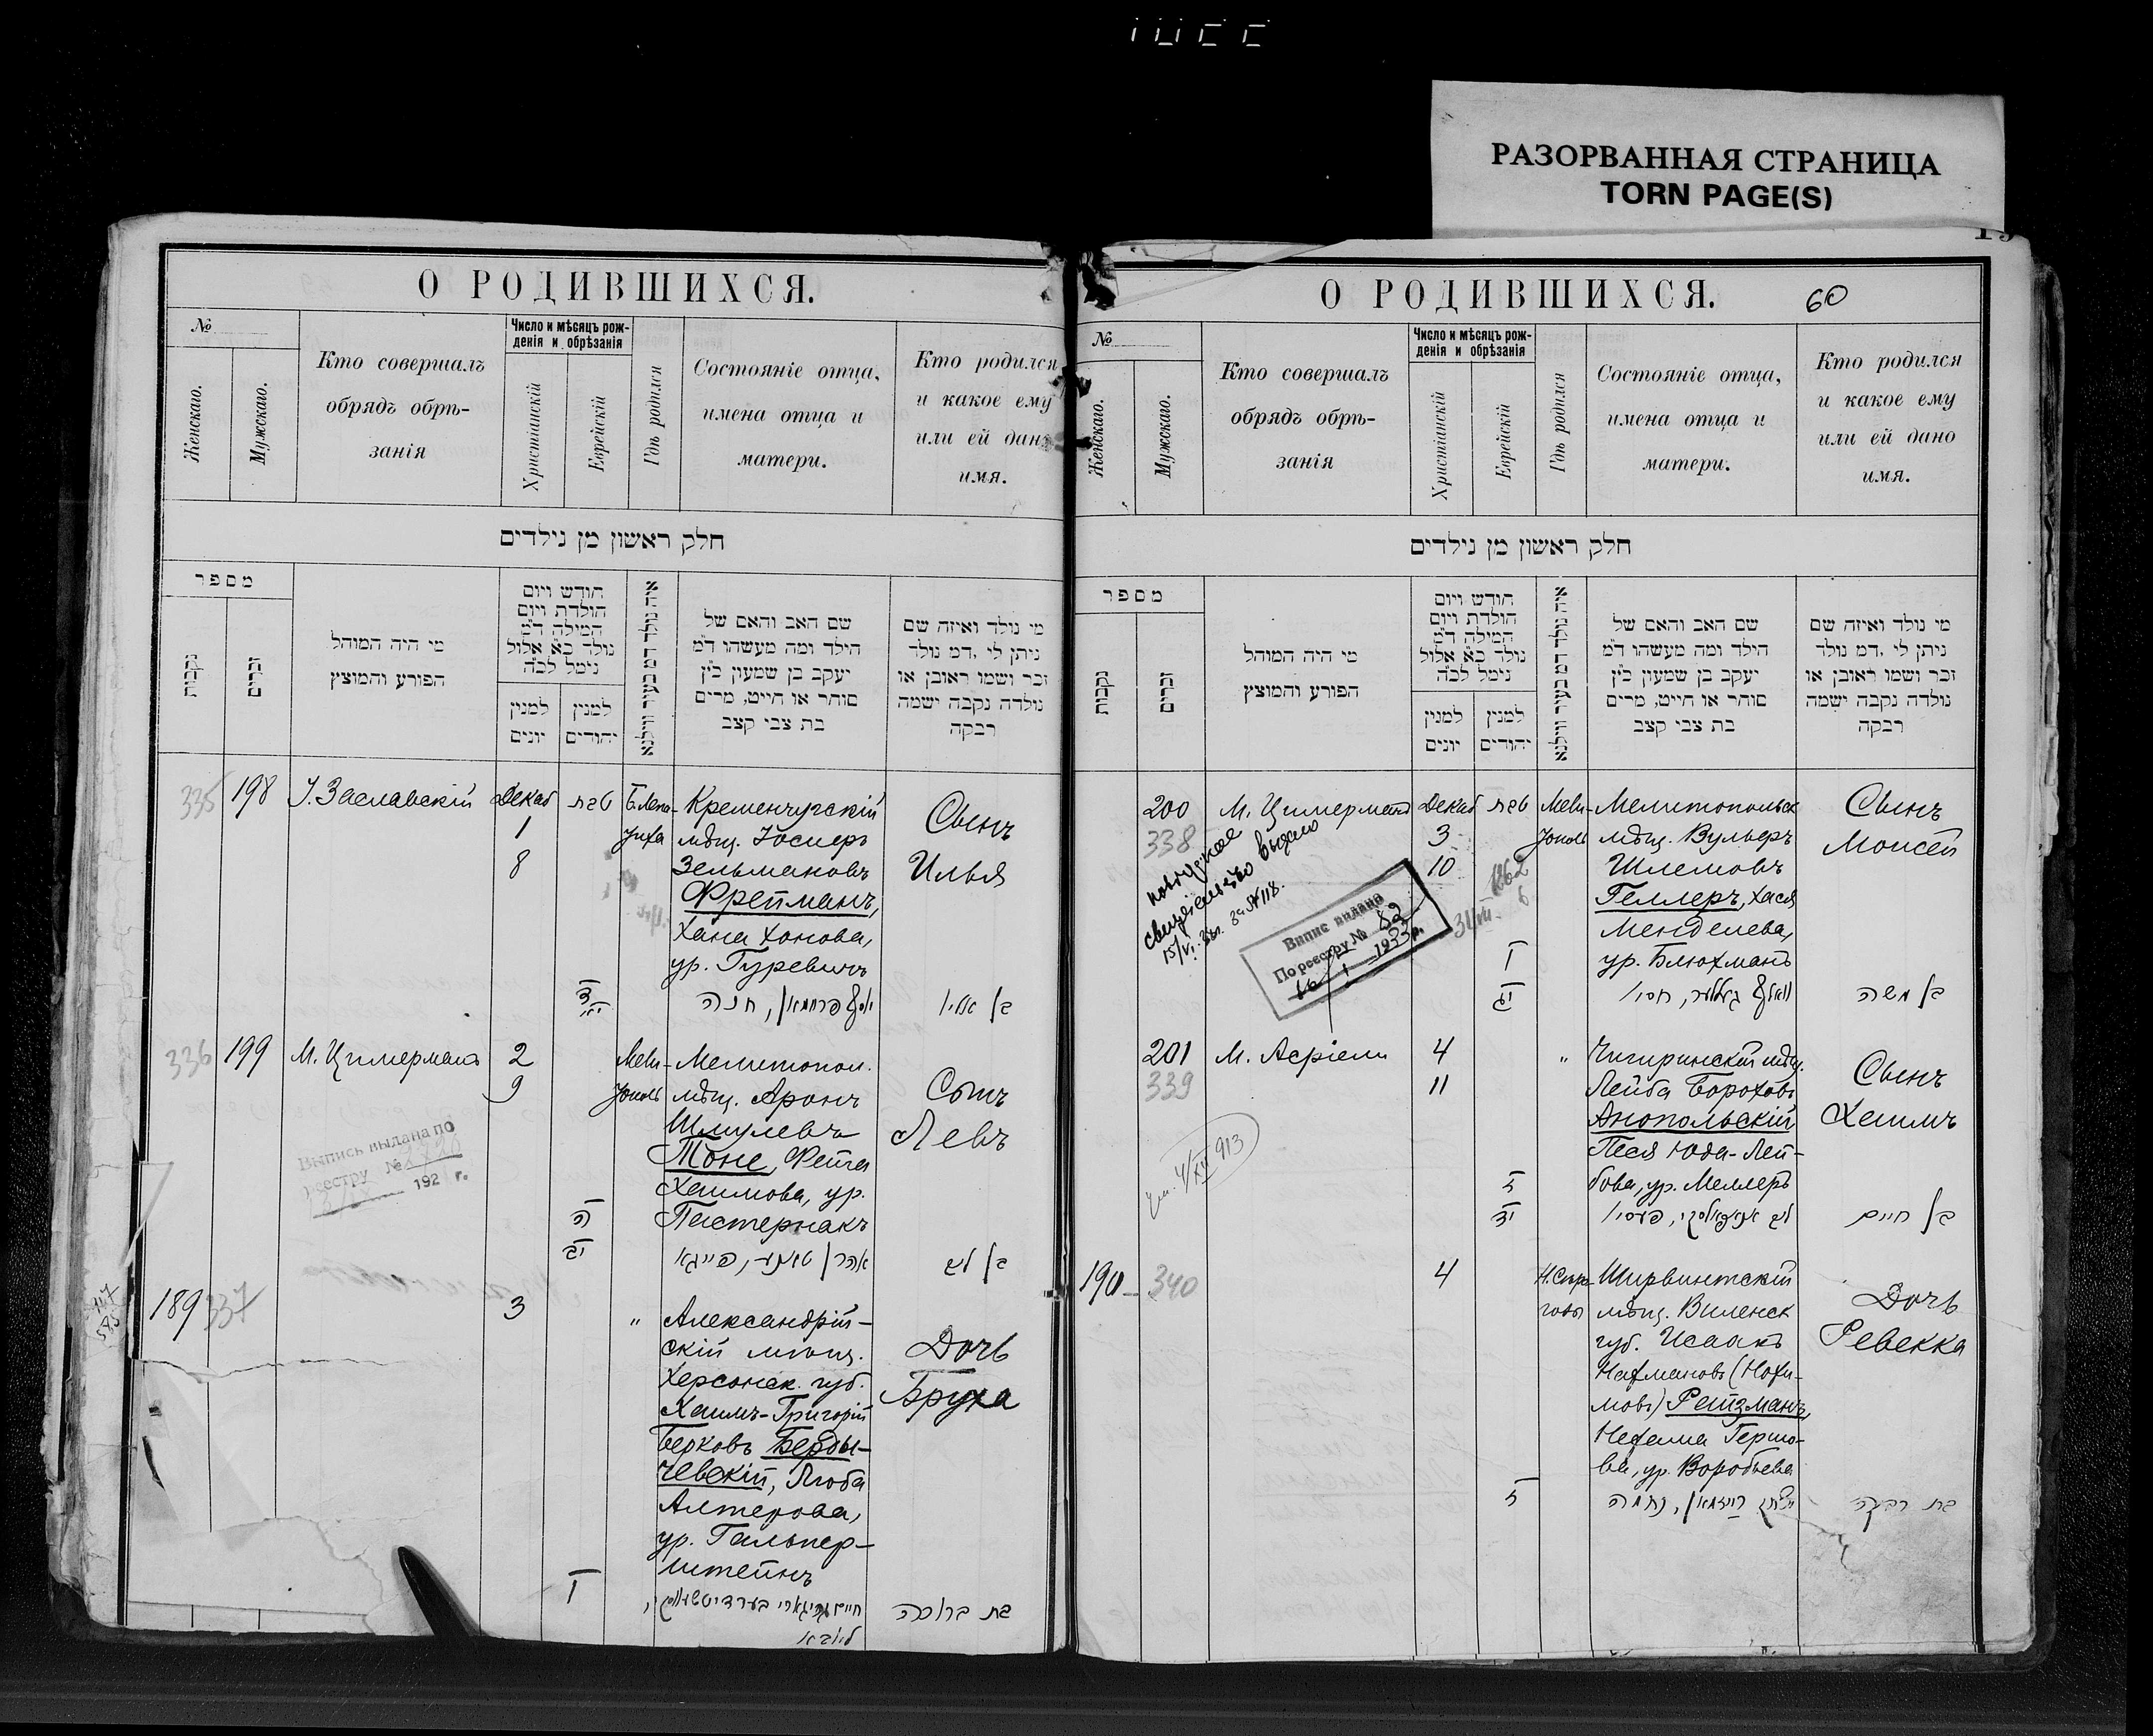 РАЗОРВАННАЯ СТРАНИЦА
TORN PAGE(S)
О РОДИВШИХСЯ.
№
Женскаго.
Мужскаго.
Кто совершалъ
обрядъ обрѣ-
занія
Число и мѣсяцъ рож-
денія и обрѣзанія
Христіанскій
Еврейскій
Гдѣ родился
Состояніе отца,
имена отца и
матери.
Кто родился
и какое ему
или ей дано
имя.
חלק ראשון מן נילדים
מספר
נקבות
זכרים
מי היה המוהל
הפורע והמוצץ
חודש ויום
הולדת ויום
המילה ד״מ
נולד כ״א אלול
נימל לכ״ה
למנין
יונים
למנין
יהודים
איה נולד דמ בעיר ווילנא
שם האב והאם של
הילד ומה מעשהו ד״מ
יעקב בן שמעון כ״ץ
סוחר או חייט, מרים
בת צבי קצב
מי נולד ואיזה שם
ניתן לי, דמ נולד
זכר ושמו ראובן או
נולדה נקבה ישמה
רבקה
335
198
У. Заславскій
Декаб
1
8
טבת
Кременчугскій
мѣщ. Іосперъ
Зельмановъ
Фрейманъ,
Хана Хонова,
ур. Гуревичъ
Сынъ
Илья
336
199
М. Цимерманъ
2
9
Мели-
тополь
Мелитопол.
мѣщ. Аронъ
Шмулевъ
Тоне, Фейга
Хаимова, ур.
Пастернакъ
Сынъ
Левъ
אהרן טאנע, פייגא
בן לב
Выпись выдана по
реестру №
192 г.
189
337
3
"
Александрій-
скій мѣщ.
Херсонск. губ.
Хаимъ-Григорій
Берковъ Берды-
чевскій, Люба
Алтерова,
ур. Гальпер-
штейнъ
Дочь
Бруха
ליובא
בת ברוכה
О РОДИВШИХСЯ.
60
№
Женскаго.
Мужскаго.
Кто совершалъ
обрядъ обрѣ-
занія
Число и мѣсяцъ рож-
денія и обрѣзанія
Христіанскій
Еврейскій
Гдѣ родился
Состояніе отца,
имена отца и
матери.
Кто родился
и какое ему
или ей дано
имя.
חלק ראשון מן נילדים
מספר
נקבות
זכרים
מי היה המוהל
הפורע והמוצץ
חודש ויום
הולדת ויום
המילה ד״מ
נולד כ״א אלול
נימל לכ״ה
למנין
יונים
למנין
יהודים
איה נולד דמ בעיר ווילנא
שם האב והאם של
הילד ומה מעשהו ד״מ
יעקב בן שמעון כ״ץ
סוחר או חייט, מרים
בת צבי קצב
מי נולד ואיזה שם
ניתן לי, דמ נולד
זכר ושמו ראובן או
נולדה נקבה ישמה
רבקה
200
338
М. Цимерманъ
Декаб
3
10
טבת
Мели-
тополь
Мелитопольск
мѣщ. Вульфъ
Шлемовъ
Геллеръ, Хася
Менделева,
ур. Блюхманъ
Сынъ
Моисей
בן משה
свидѣтельство выдано
Випис видано
По реестру № 82
1933р.
201
339
М. Асріели
4
11
"
Чигиринскій мѣщ.
Лейба Бороховъ
Анопольскій
Песя Юда-Лей-
бова, ур. Меллеръ
Сынъ
Хаимъ
בן חיים
4/XII 913
190
340
4
Ширвинтскій
мѣщ. Виленск
губ. Исаакъ
Нахмановъ (Нохи-
мовъ) Рейзманъ,
Нехама Гершо-
ва, ур. Воробьева
Дочь
Ревекка
יצחק רייזמאן, נחמה
בת רבקה